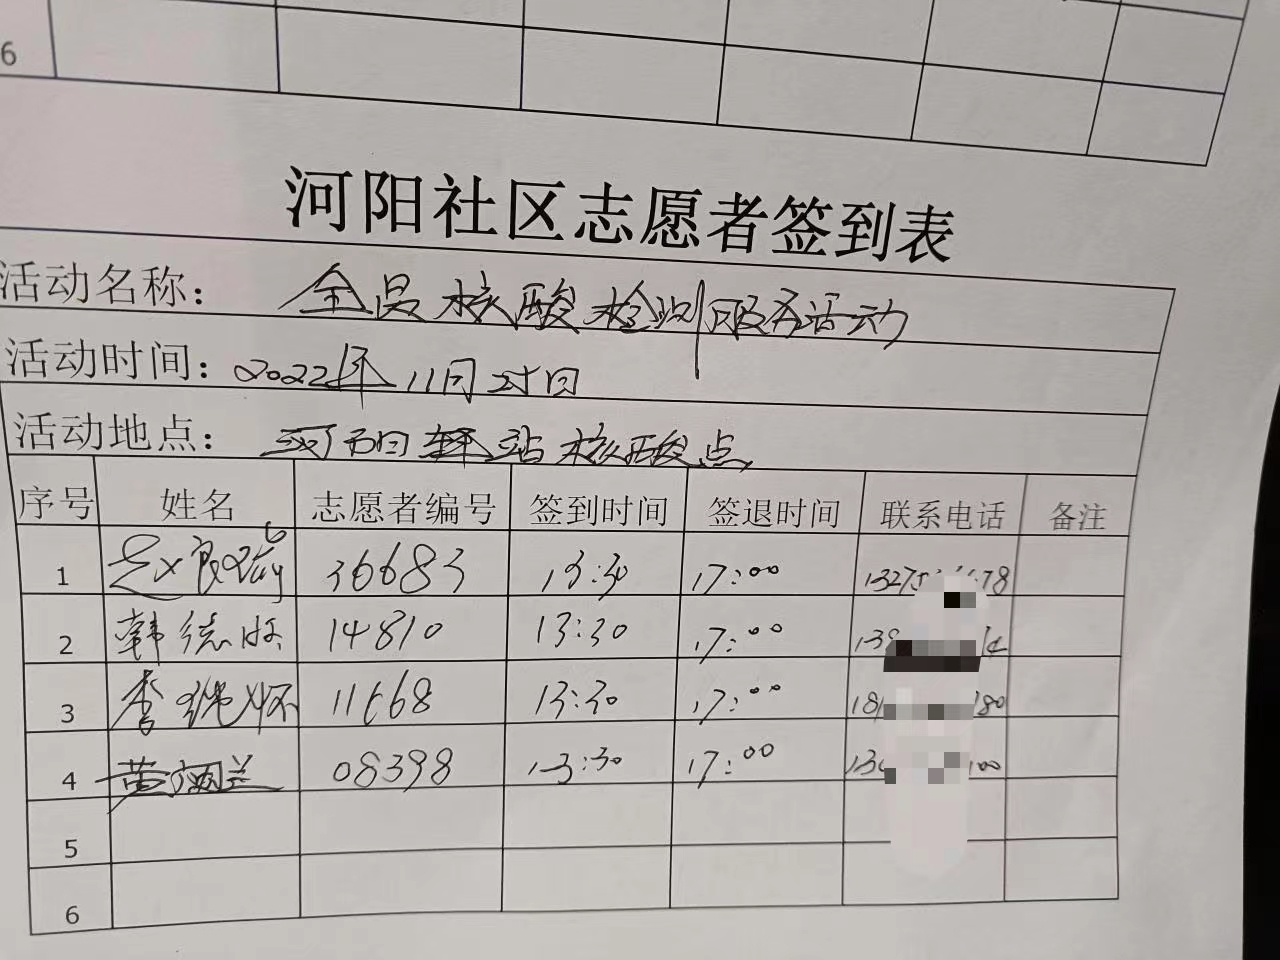 6
河阳社区志愿者签到表
活动名称： 全员核酸检测服务活动
活动时间： 2022年11月25日
活动地点： 河阳驿站核酸点
序号 姓名 志愿者编号 签到时间 签退时间 联系电话 备注
1 36683 13:30 17:00
2 韩德 14810 13:30 17:00
3 李 11668 13:30 17:00
4 黄 兰 08398 13:30 17:00
5
6